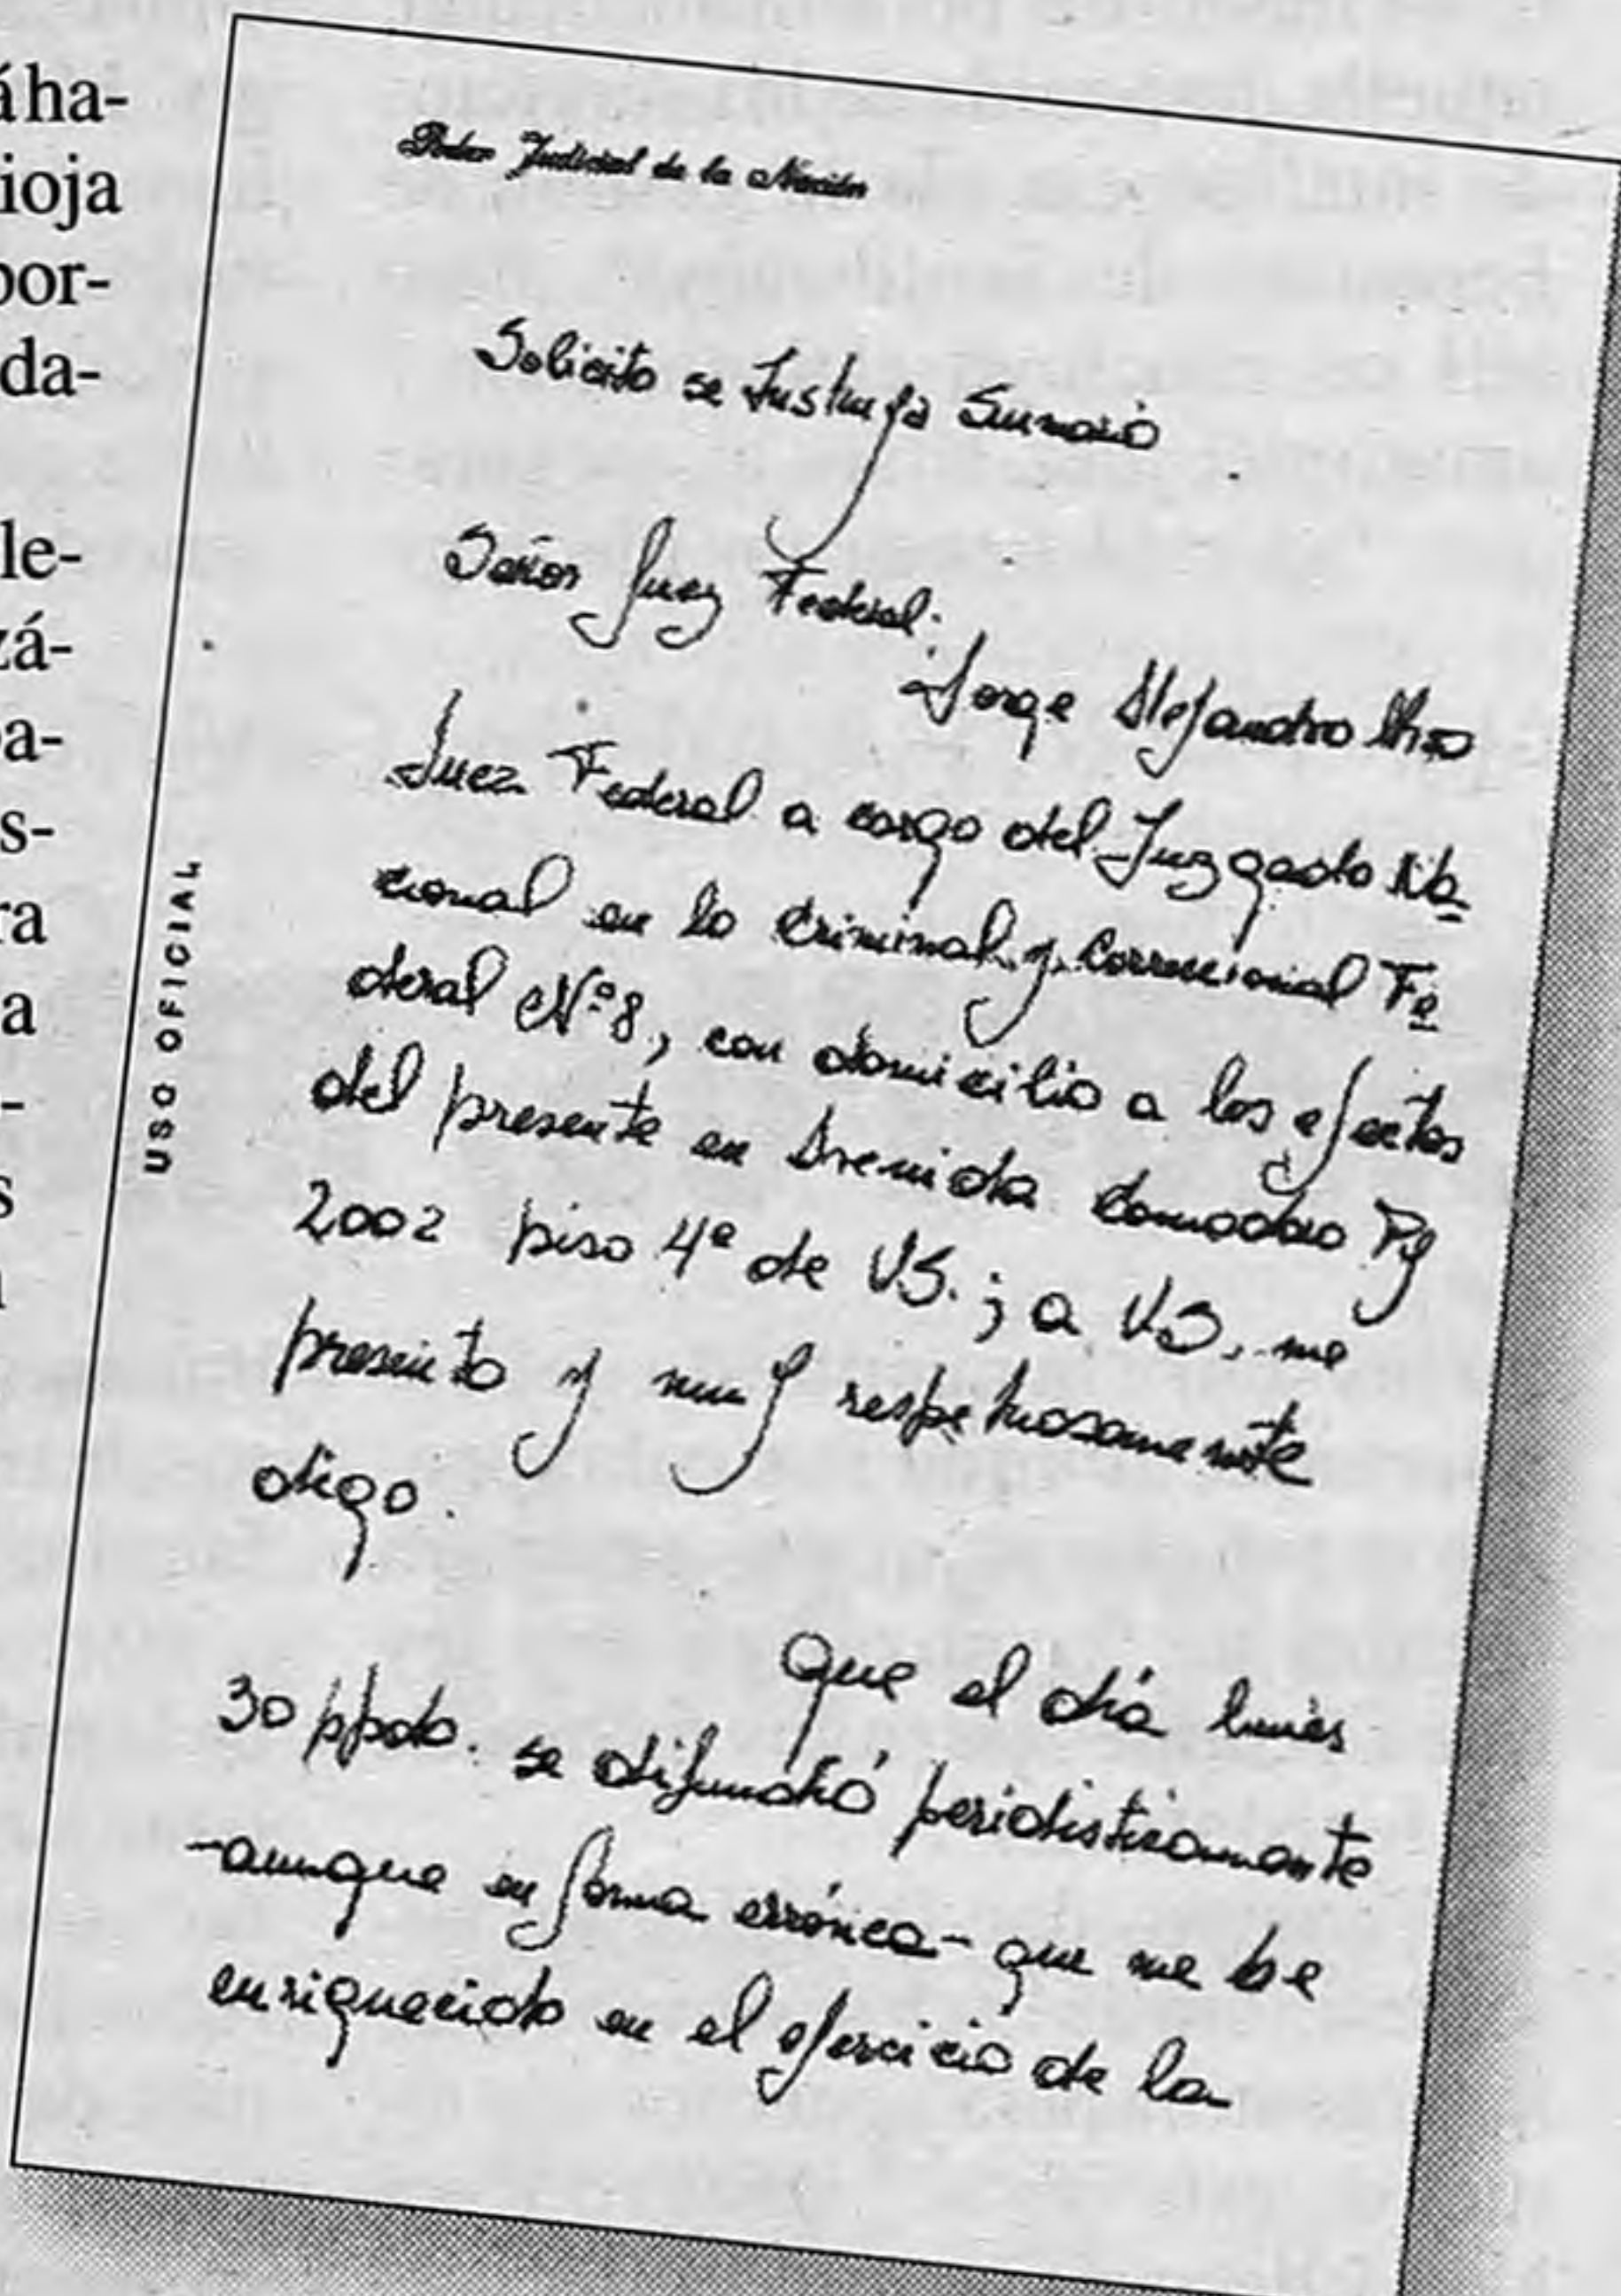 á ha-
ioja
por-
da-
le-
zá-
a-
s-
ra
a
-
s
Poder Judicial de la Nación
USO OFICIAL
Solicito se Instruya Sumario
Señor Juez Federal:
Jorge Alejandro Urso
Juez Federal a cargo del Juzgado Na
cional en lo Criminal y Correccional Fe
deral Nº 8, con domicilio a los efectos
del presente en Avenida Comodoro Py
2002 piso 4º de VS.; a VS. me
presento y muy respetuosamente
digo.
Que el día lunes
30 ppdo. se difundió periodísticamente
-aunque en forma errónea- que me he
enriquecido en el ejercicio de la